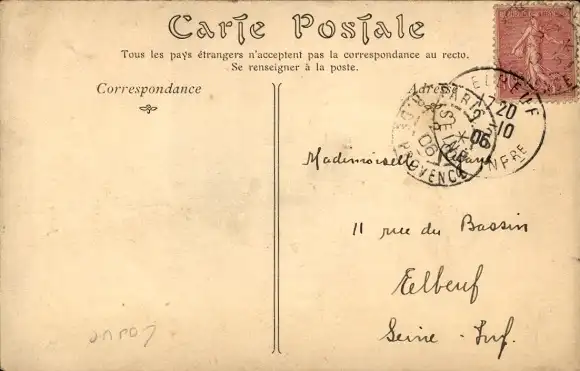 Carte Postale
Tous les pays étrangers n'acceptent pas la correspondance au recto.
Se renseigner à la poste.
Correspondance
Adresse
ELBEUF
17 20
2-10
06
PARIS
PROVENCE
Mademoiselle
11 rue du Bassin
Elbeuf
Seine-Inf.